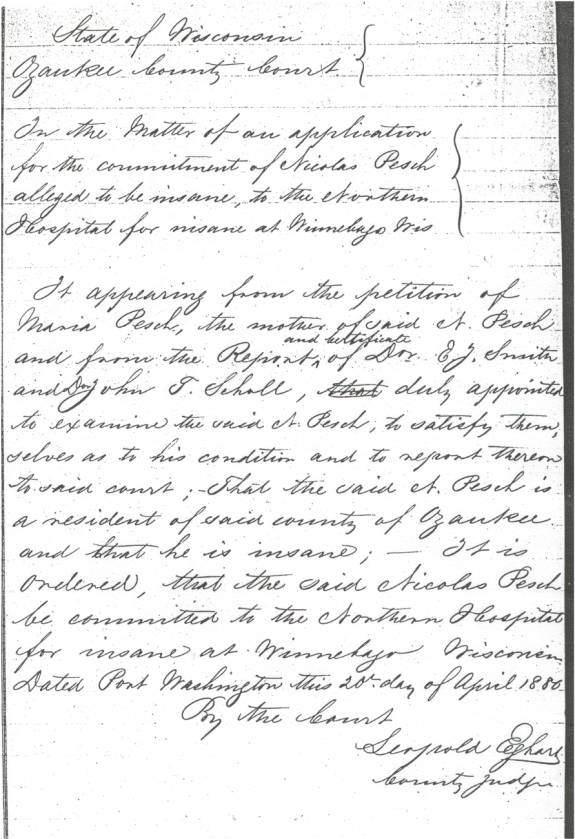 State of Wisconsin
Ozaukee County Court
In the Matter of an application
for the commitment of Nicolas Pesch
alleged to be insane, to the Northern
Hospital for insane at Winnebago Wis
It appearing from the petition of
Maria Pesch, the mother of said N. Pesch
and certificate
and from the Report, of Dor. E. J. Smith
and Dor John T. Scholl, that duly appointed
to examine the said N. Pesch, to satisfy them,
selves as to his condition and to report thereon
to said court; - That the said N. Pesch is
a resident of said county of Ozaukee
and that he is insane; — It is
Ordered, that the said Nicolas Pesch
be committed to the Northern Hospital
for insane at Winnebago Wisconsin.
Dated Port Washington this 20th day of April 1880
By the Court
Leopold Eghart
County Judge